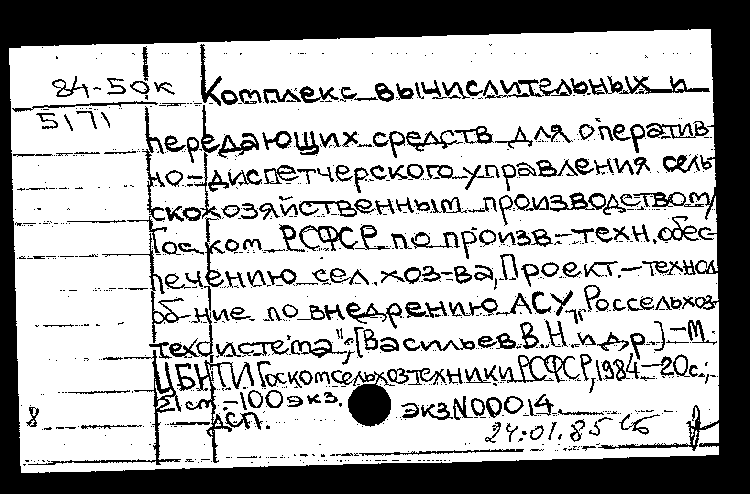 84-50к Комплекс вычислительных и
5171
передающих средств для оператив-
но-диспетчерского управления сель
скохозяйственным производством/
Госком РСФСР по произв.-техн. обес
печению сел. хоз-ва, Проект.-технол
об-ние по внедрению АСУ "Россельхоз
техсистема"; [Васильев В. Н и др.] -М.
ЦБНТИ Госкомсельхозтехники РСФСР, 1984.-20с.;
21см.-100экз. экз N00014.
8 ДСП.
24.01.85